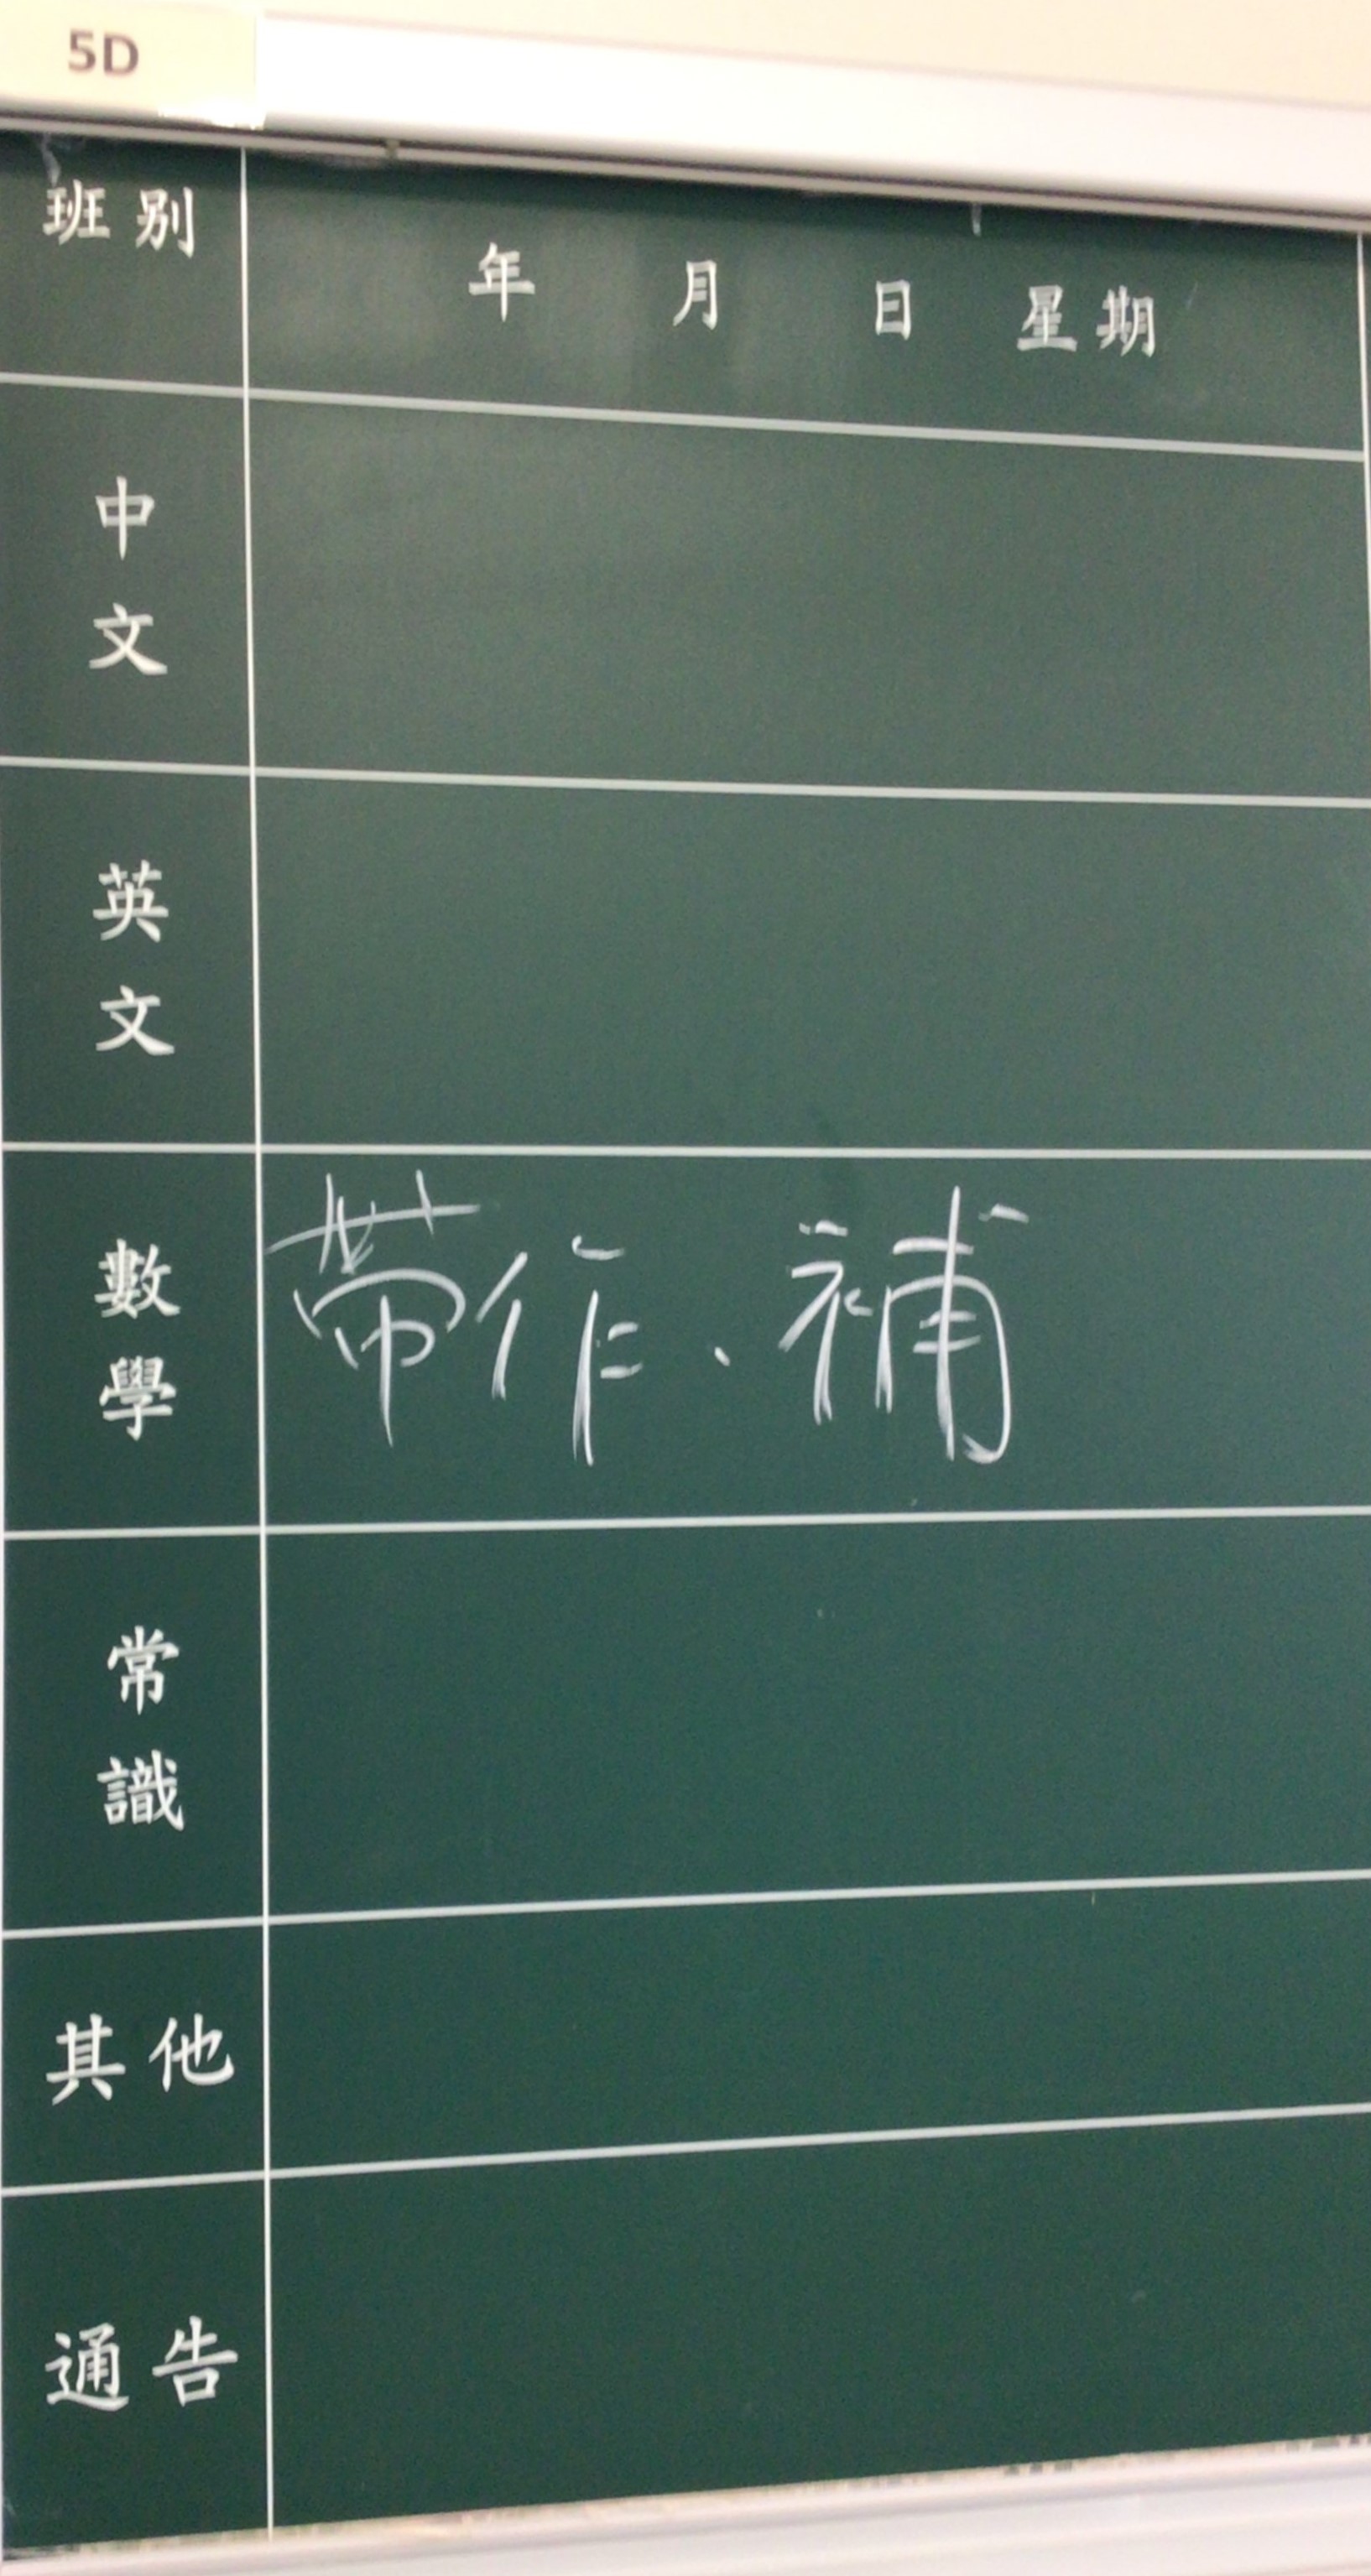 5D
班別
年 月 日 星期
中文
英文
數學
帶作、補
常識
其他
通告